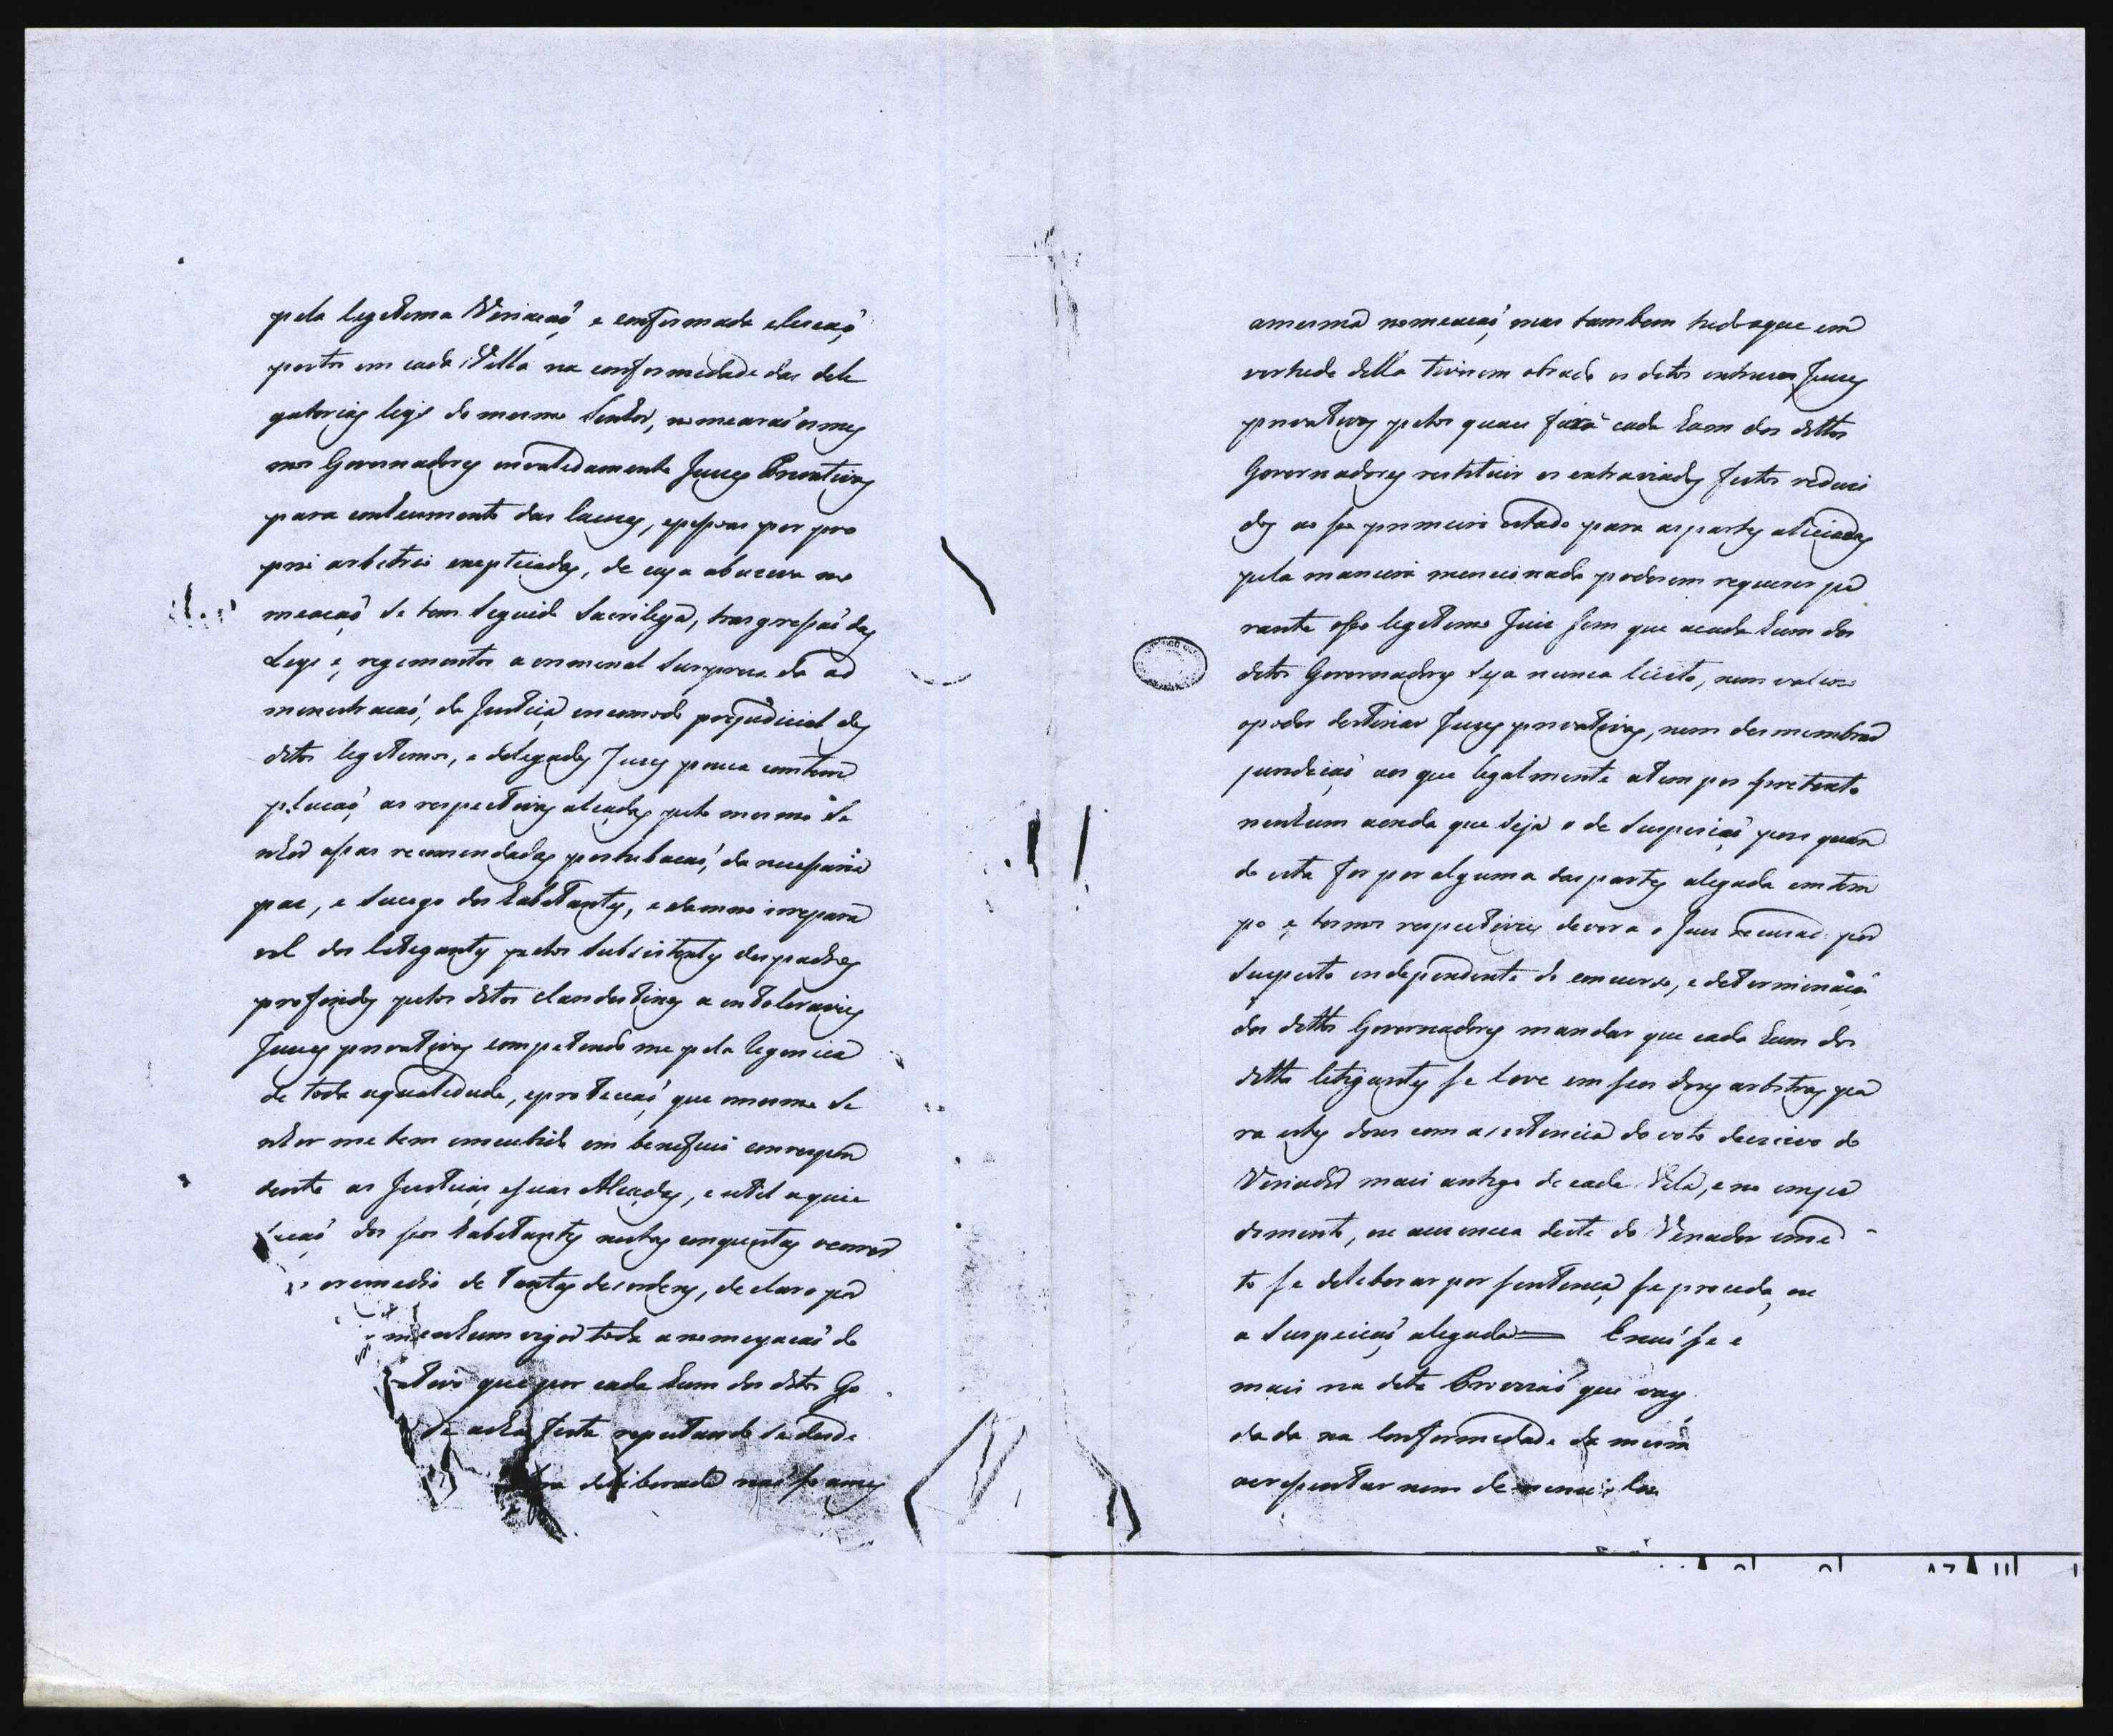 pela legetema Veriacaó, e comfirmada eleicaó,
postos em cada Villa na comformedade das dele
gatorias leys do mesmo Senhor, nomearaó os mes
mos Governadores envaledamente Juizes Privativos
para conhecimento das Causas, epessoas por pro
prio arbetrio exceptuadas, de cuja abuziva no
meacaó se tem seguido Sacrilega, trasgressaó das
Leys e, regimentos a criminal Surpreza da ad
menestracaó, da Justiça encomodo prejudicial dos
ditos legetemos, e delegados Juizes pouca contem
placaó, as respectivas alçadas pelo mesmo Se
nhor assas recomendadas perturbacaó, da necessaria
paz, e Sucego dos habetantes, e damno irrepara
vel dos letegantes pelos Subsistentes despachos
proferidos pelos ditos clandestinos e entoleraveis
Juizes privativos competendome pela regencia
de toda aqualedade, eprotecaó, que omesmo Se
nhor me tem emcubido em beneficio correspon
dente as Justicias, esuas Alçadas, e util aquie
tacaó dos seos habetantes nestas conquestas
oremedio de tantas desordens, declaro por
nenhum vigor toda a nomeyacaó de
ativo que por cada hum dos ditos Go
se acha feita reputando se desde
deliberada naó so a mes
amesma nomeacaó, mas tambem tudo oque em
vertude della tiverem obrado os ditos intruzos Juizes
privativos pelos quaes fará cada hum dos dittos
Governadores restituir os extraviados feitos reduzi
dos ao seo primeiro estado para as partes
pela maneira mencionada poderem requerer pe
rante oseo legetemo Juiz sem que acada hum dos
ditos Governadores seja nunca licito, nem valiozo
opoder destinar Juizes privativos, nem desmembrar
jurediçaó aos que legalmente atem por pretexto
nenhum aenda que seja o de Suspeicaó, pois quan
do esta for por alguma das partes alegada em tem
po e, termos respectivos devera o Juiz recusado por
Suspeito endependente de concurso, e determinacaó
dos dittos Governadores mandar que cada hum dos
dittos letegantes se love em seos dous arbitros pa
ra estes dous com asistencia do voto decizivo do
Veriador mais antigo de cada Villa, e no empe
demento, ou auzencia deste do Veriador imedia
to se deleberar por sentenca, se proceda, ou
a Suspeicaó, alegada = Enaó se e
mais na dita Provizaó que vay
dada na Comformedade da mesma